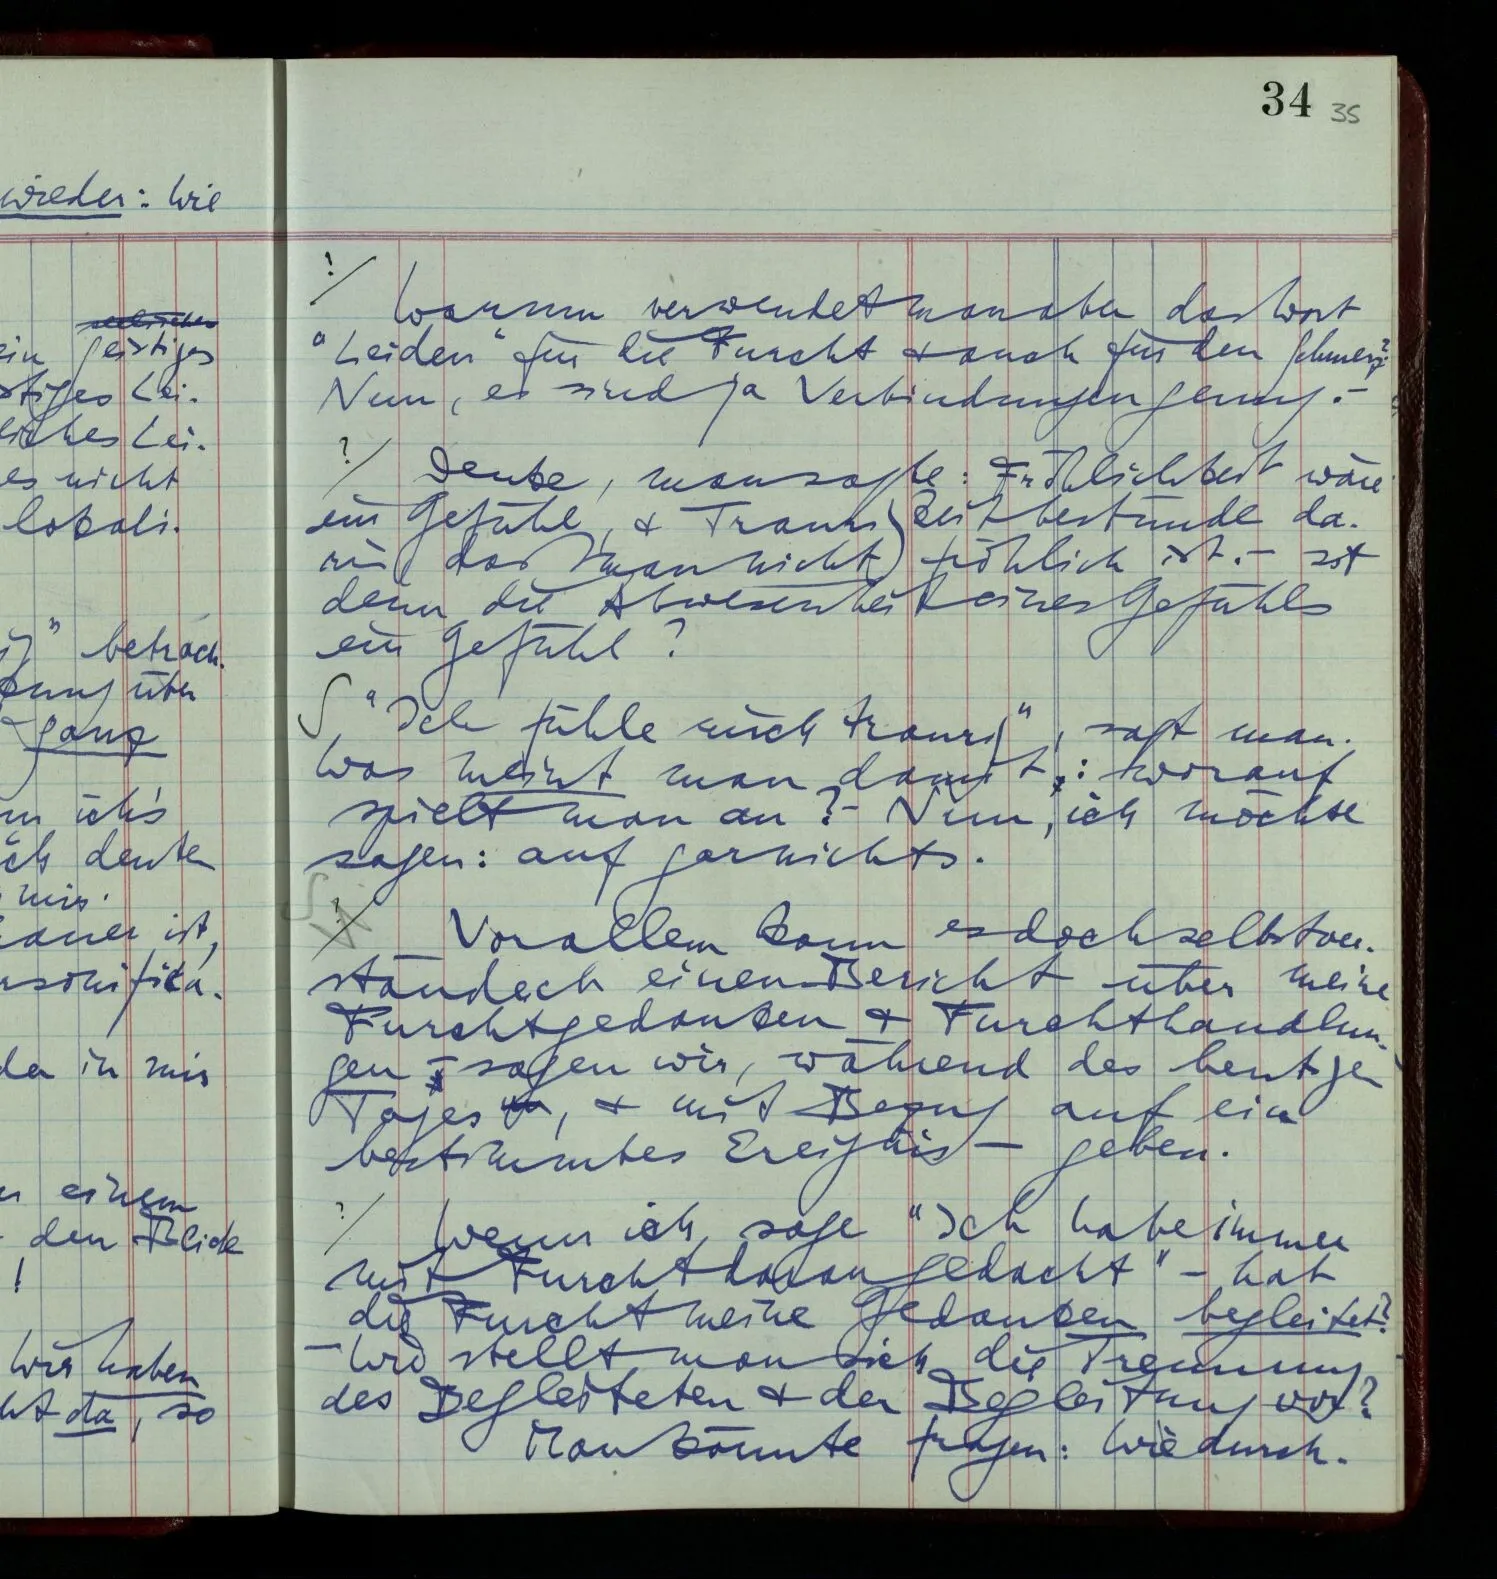 wieder: Wie
seelisches
ein geistiges
stiges Lei-
liches Lei-
es nicht
lokali-
" betrach-
über
ganz
ich's
ich denken
mir.
ist,
da in mir
einem
den Blick
!
Wir haben
da, so
34 35
?/ Warum verwendet man aber das Wort
"Leiden" für die Furcht & auch für den Schmerz?
Nun, es sind ja Verbindungen genug. –
?/ Denke, man sagte: Fröhlichkeit wäre
ein Gefühl, & Traurigkeit bestünde da-
rin das man nicht fröhlich ist. – Ist
denn die Abwesenheit eines Gefühls
ein Gefühl?
∫ "Ich fühle mich traurig", sagt man.
Was meint man damit,: worauf
spielt man an? – Nun, ich möchte
sagen: auf garnichts.
?/ Vor allem kann es doch selbstver-
ständlich einen Bericht über meine
Furchtgedanken & Furchthandlun-
gen – sagen wir, während des heutigen
Tages, & mit Bezug auf ein
bestimmtes Ereignis – geben.
?/ Wenn ich sage "Ich habe immer
mit Furcht daran gedacht" – hat
die Furcht meine Gedanken begleitet?
– Wie stellt man sich die Trennung
des Begleiteten & der Begleitung vor?
Man könnte fragen: Wie durch-